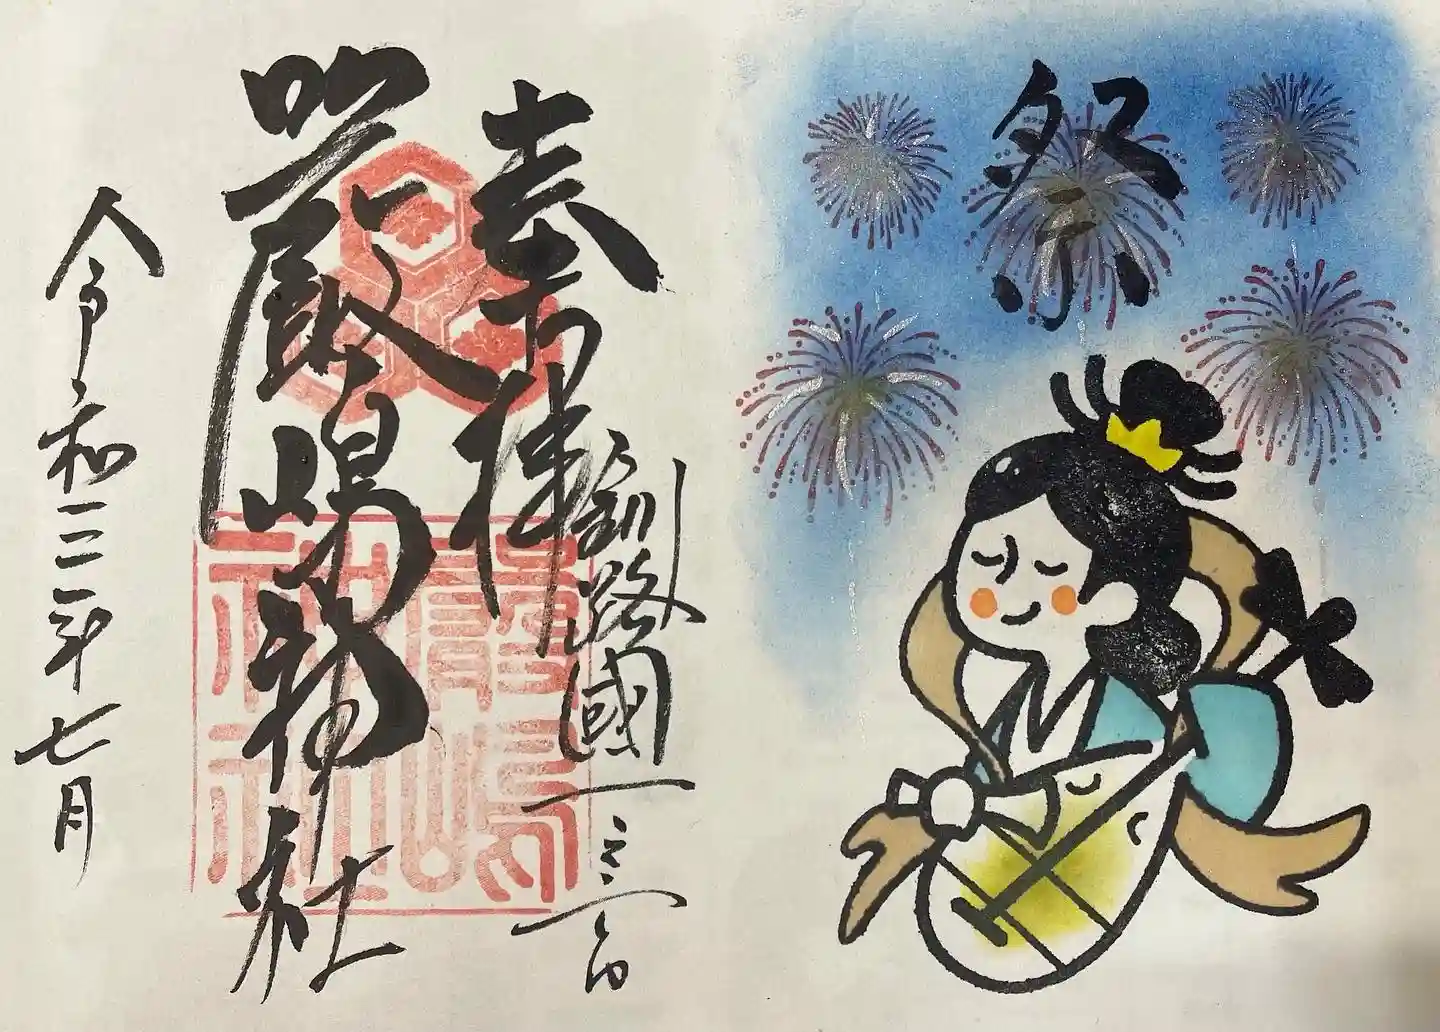 祭
奉拝
釧路國一之宮
嚴嶋神社
嚴嶋
神社
令和三年七月